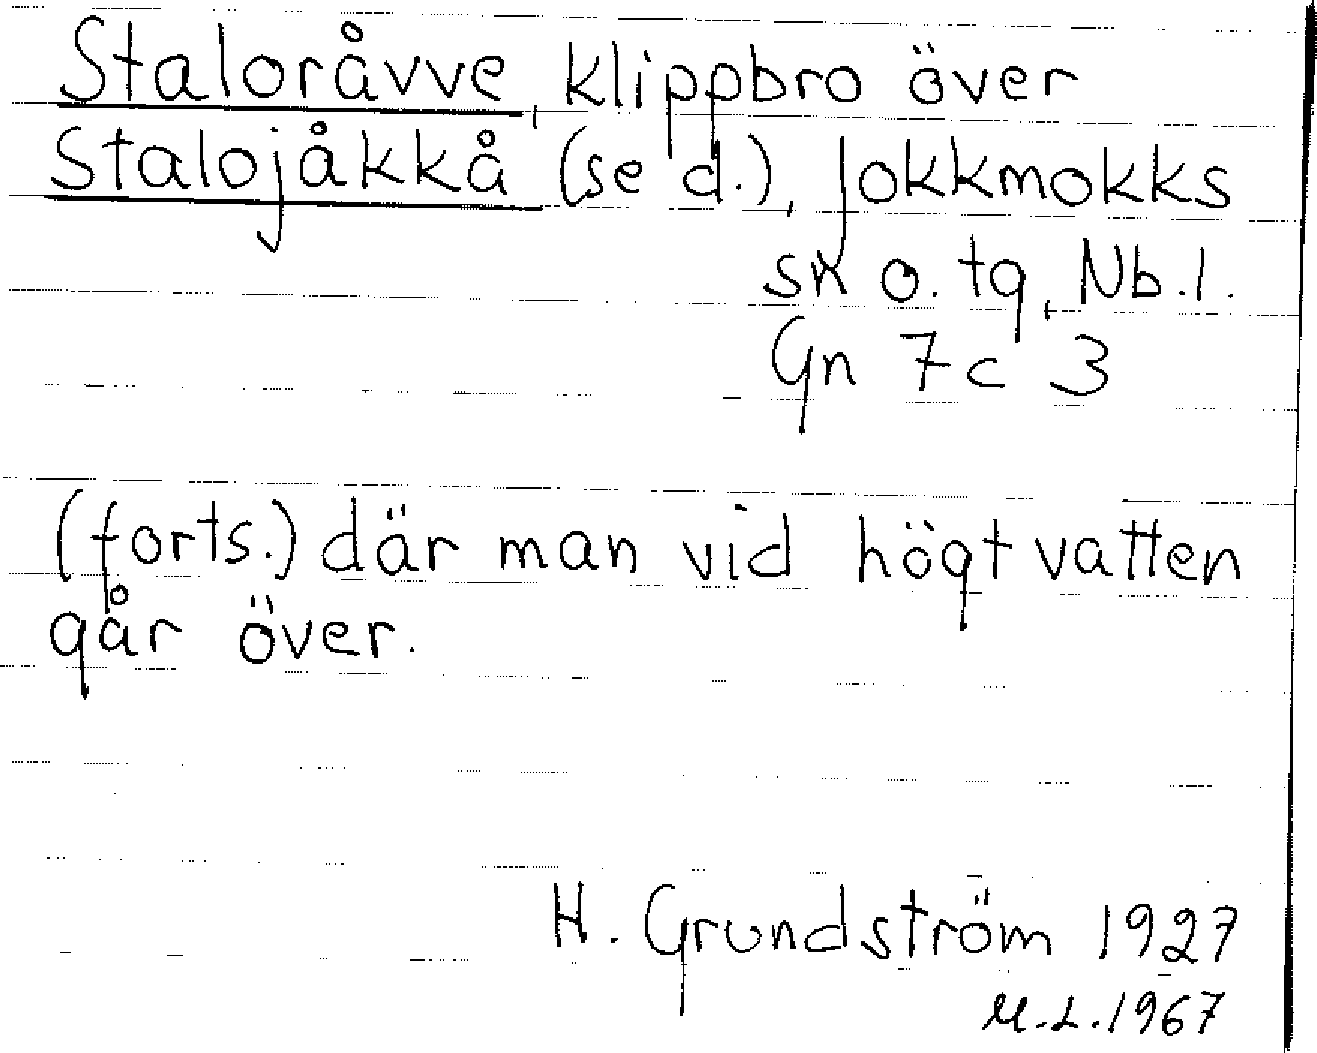 Staloråvve, klippbro över
Stalojåkkå (se d.), Jokkmokks
sn o. tg, Nb.l.
Gn 7c 3
(forts.) där man vid högt vatten
går över.
H. Grundström 1927
M.L. 1967